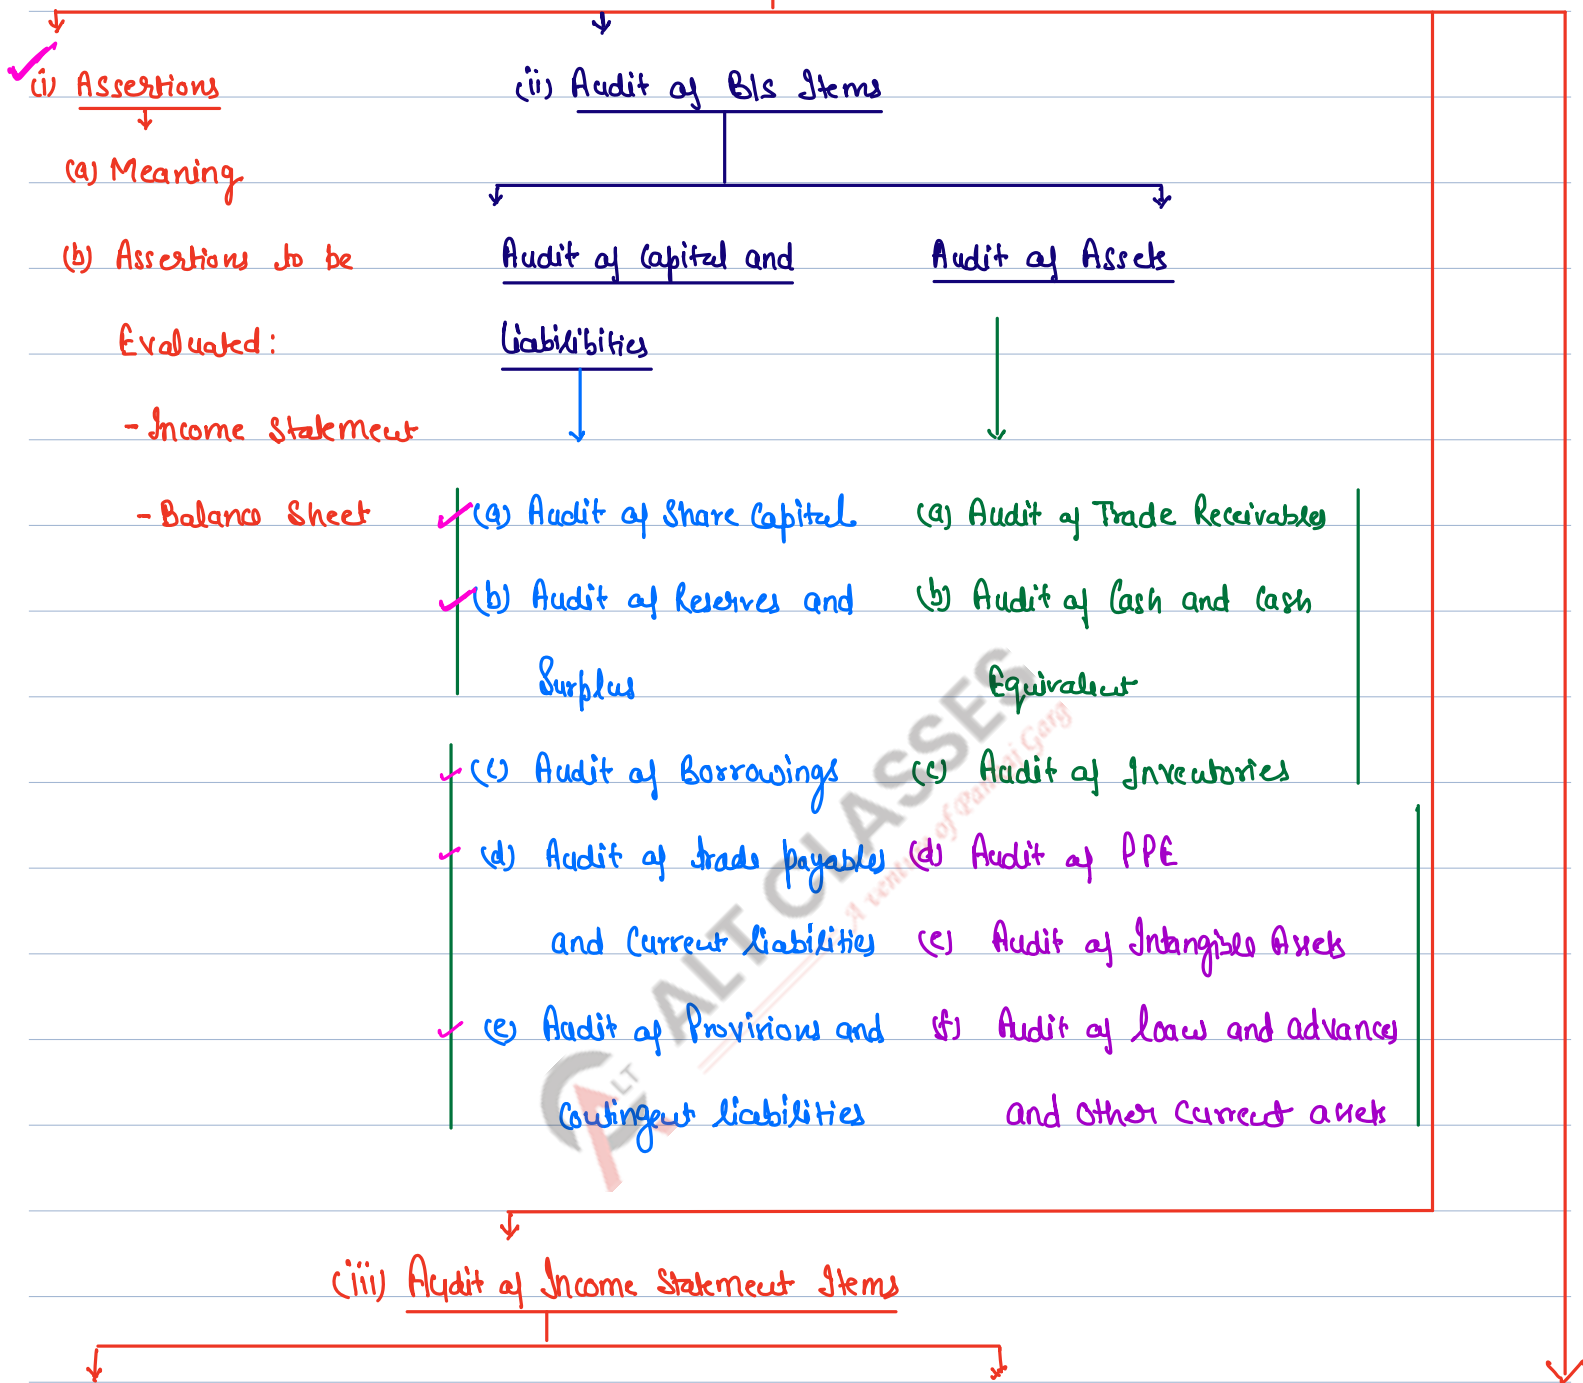 (i) Assertions
(a) Meaning
(b) Assertions to be
Evaluated:
- Income Statement
- Balance Sheet
(ii) Audit of B/S Items
Audit of Capital and
Liabilibities
(a) Audit of Share Capital
(b) Audit of Reserves and
Surplus
(c) Audit of Borrowings
(d) Audit of trade payables
and Current liabilities
(e) Audit of Provisions and
Contingent liabilities
Audit of Assets
(a) Audit of Trade Receivables
(b) Audit of Cash and Cash
Equivalent
(c) Audit of Inventories
(d) Audit of PPE
(e) Audit of Intangible Assets
(f) Audit of loans and advances
and other current assets
(iii) Audit of Income Statement Items
ALT CLASSES
A venture of Pankaj Garg
ALT